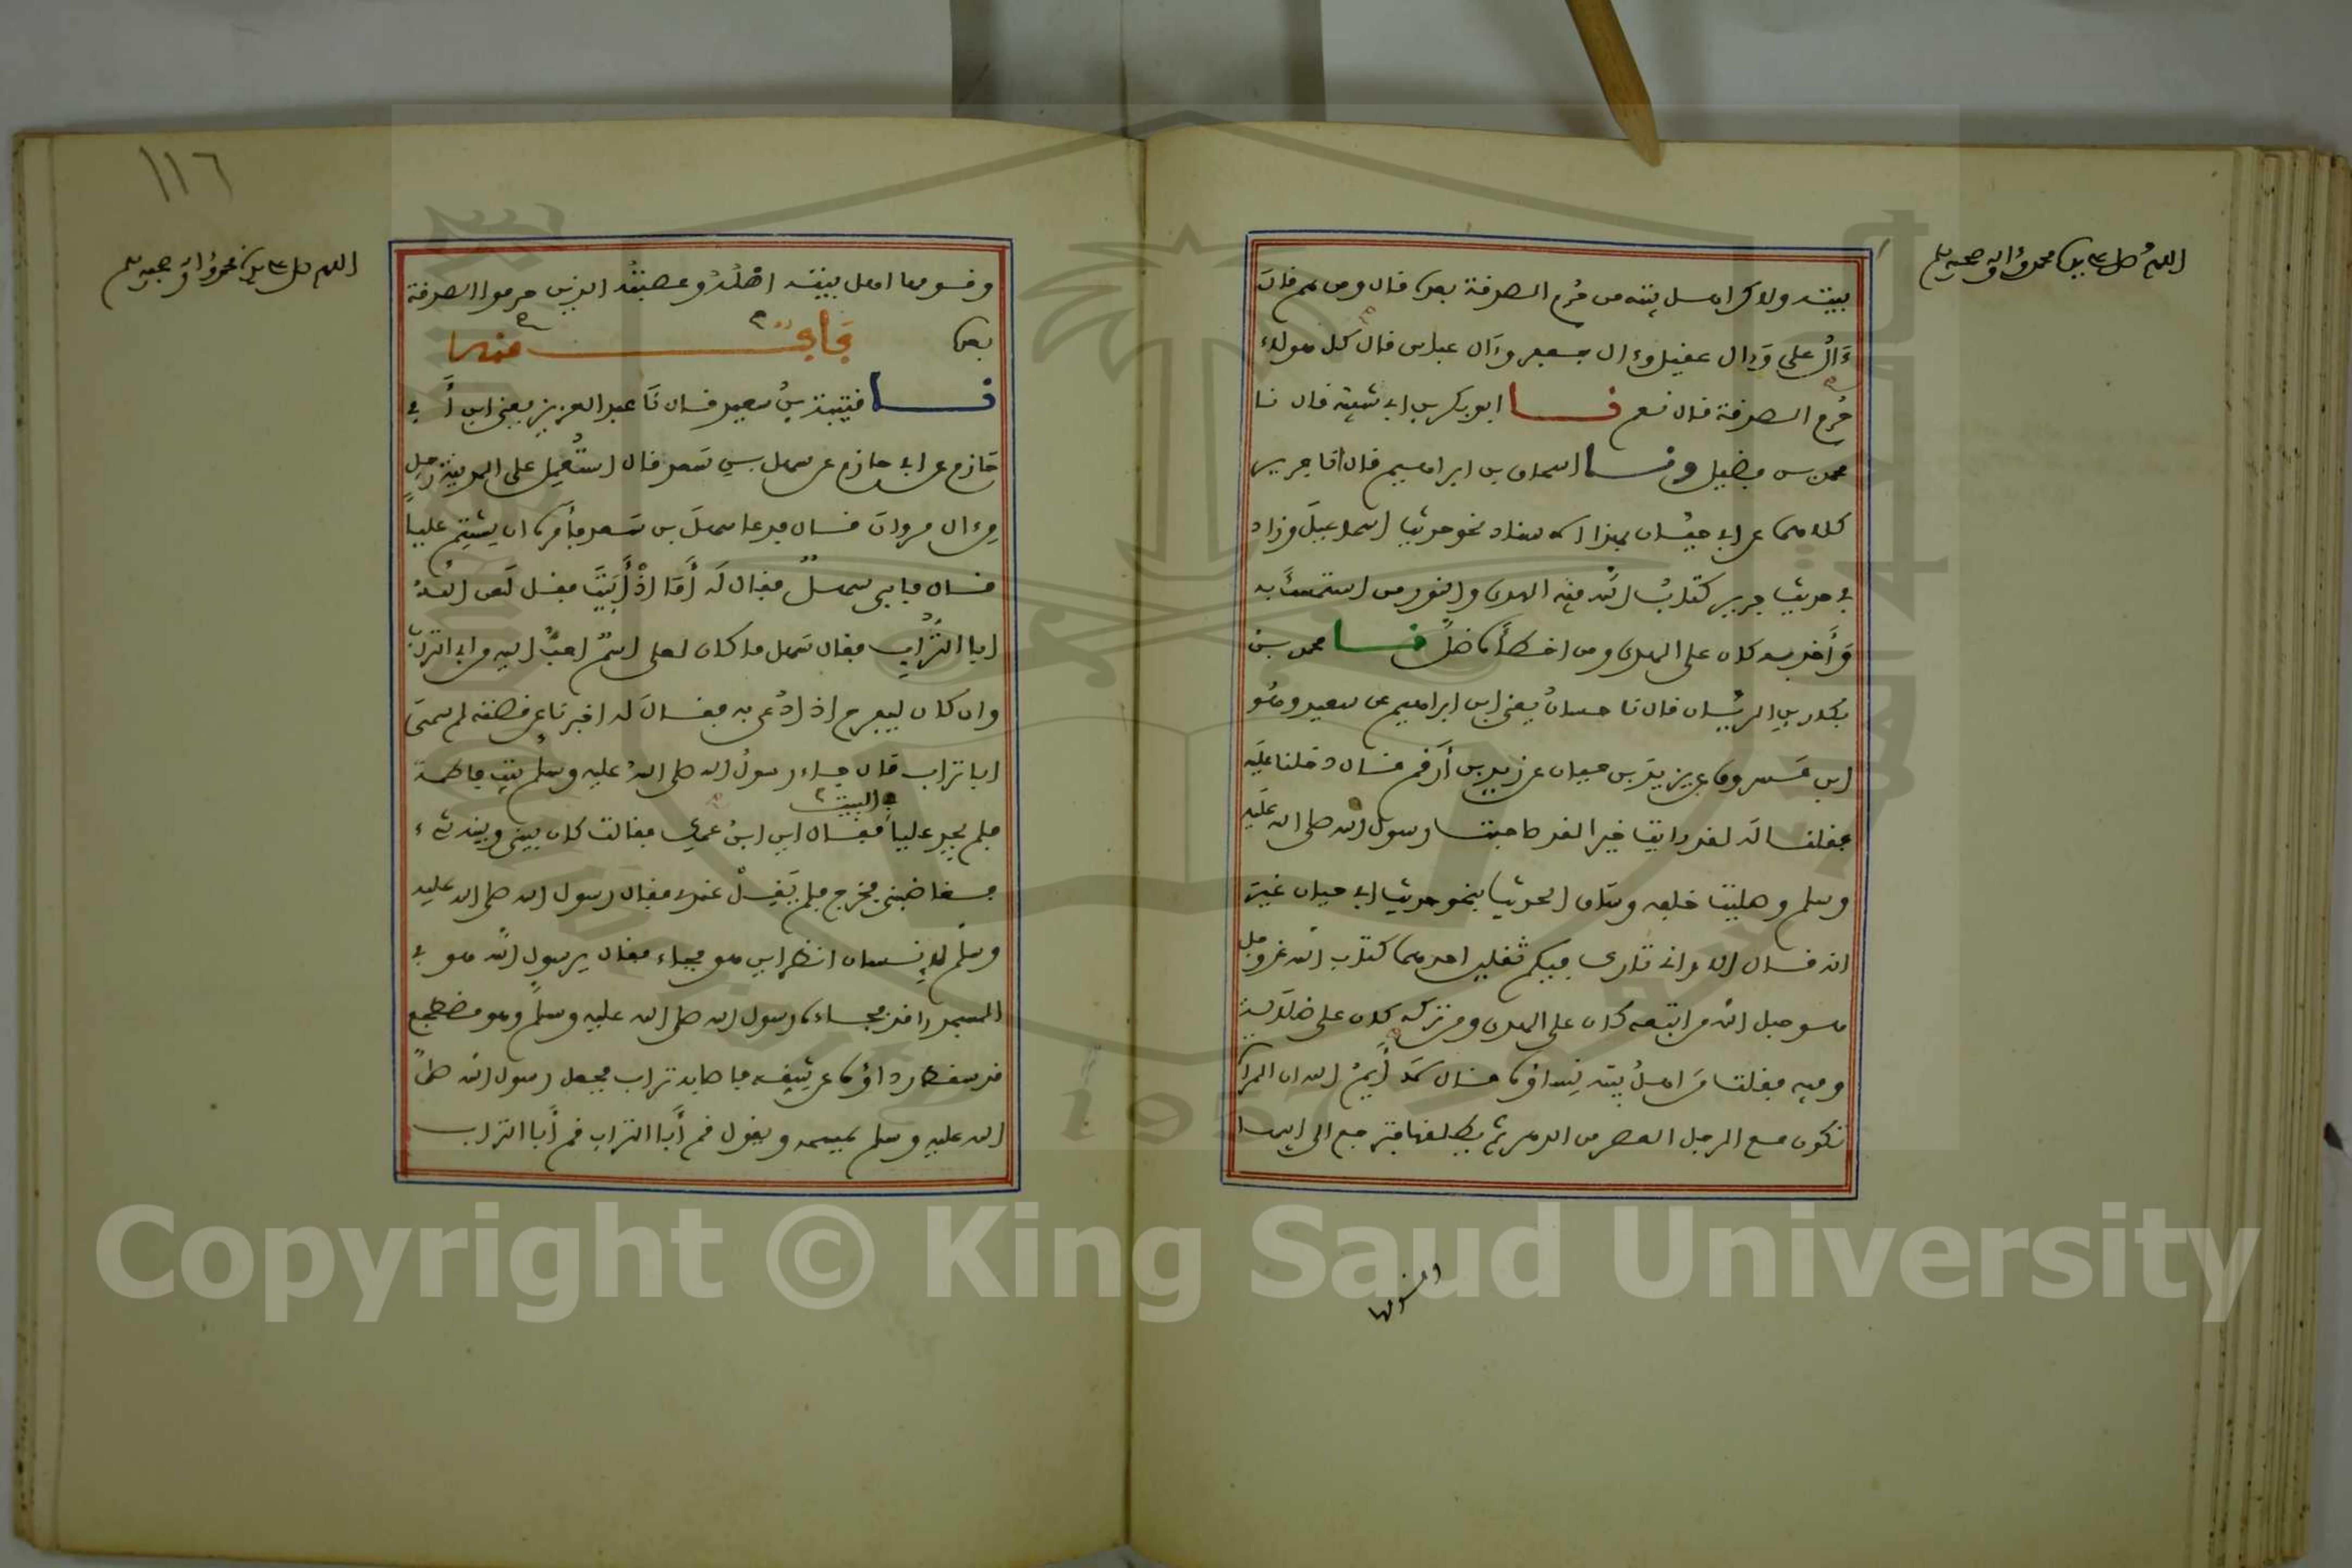 اللهم صل على سيدنا محمد وآله وصحبه وسلم
بيته ولاكن اهل بيته من حُرم الصدقة بعده قال ومن هم قال
ءَالُ علي وءال عقيل وءال جعفر وءال عباس قال كل هولاء
حُرم الصدقة قال نعم نا ابو بكر بن ابي شيبة قال نا
محمد بن فضيل ونا اسحاق بن ابراهيم قال انا جرير
كلاهما عن ابي حيان بهذا الاسناد نحو حديث اسماعيل وزاد
في حديث جرير كتاب الله فيه الهدى والنور من استمسك به
وَأخذ به كان على الهدى ومن اخطأه ضل نا محمد بن
بكار بن الريان قال نا حسان يعني ابن ابراهيم عن سعيد وهُو
ابن مسروق عن يزيد بن حيان عن زيد بن أرقم قال دخلنا عليه
فقلنا له لقد رايت خيرا لقد صاحبت رسول الله صلى الله عليه
وسلم وصليت خلفه وساق الحديث بنحو حديث ابي حيان غير
انه قال الا واني تارك فيكم ثقلين احدهما كتاب الله عز وجل
هو حبل الله من اتبعه كان على الهدى ومن تركه كان على ضلالة
وفيه فقلنا مَن اهلُ بيته نساؤه قال لا وأيمُ الله ان المرأة
تكون مع الرجل العصر من الدهر ثم يطلقها فترجع الى ابيها
١١٦
اللهم صل على سيدنا محمد وآله وصحبه وسلم
وقومها اهل بيته اصْلُهُ وعصبتُه الذين حرموا الصدقة
بعده منها
نا قتيبة بن سعيد قال نَا عبد العزيز يعني ابن أَبي
حَازم عن ابي حازم عن سهل بن سَعد قال استُعمِل على المدينة رجل
مِن ءال مروان قال فدعا سهلَ بن سَعد فأمره ان يشتِم عليا
قال فابى سهلٌ فقال لَه أَمَّا اذْ أَبَيْتَ فقل لَعن اللهُ
ابا التُّراب فقال سَهل ما كان لعلي اسمٌ احبُّ اليه من ابي التراب
وان كان ليفرح اذا دُعي به فقال لَه اخبرنا عن قصته لم سمي
ابا تراب قال جاء رسولُ الله صلى الله عليه وسلم بيت فاطمة
فلم يجد عليا في البيت فقال اين ابنُ عمك فقالت كان بيني وبينه شيء
فغاضبني فخرج فلم يَقِلْ عندي فقال رسول الله صلى الله عليه
وسلم لإنسان انظر اين هو فجاء فقال يرسول الله هو في
المسجد راقد فجاءه رسول الله صلى الله عليه وسلم وهو مضطجع
قد سقط رداؤه عن شقه فاصابه تراب فجعل رسول الله صلى
الله عليه وسلم يمسحه ويقول قم أَبا التراب قم أَبا التراب
Copyright © King Saud University
1957